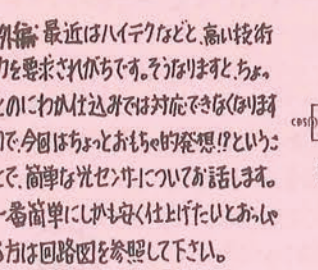 外編: 最近はハイテクなどと、高い技術
力を要求されがちです。そうなりますと、ちょっ
とのにわか仕込みでは対応できなくなります
ので、今回はちょっとおもちゃ的発想!?というこ
とで、簡単な光センサについてお話します。
一番簡単にしかも安く仕上げたいとおっしゃ
る方は回路図を参照して下さい。
CDS